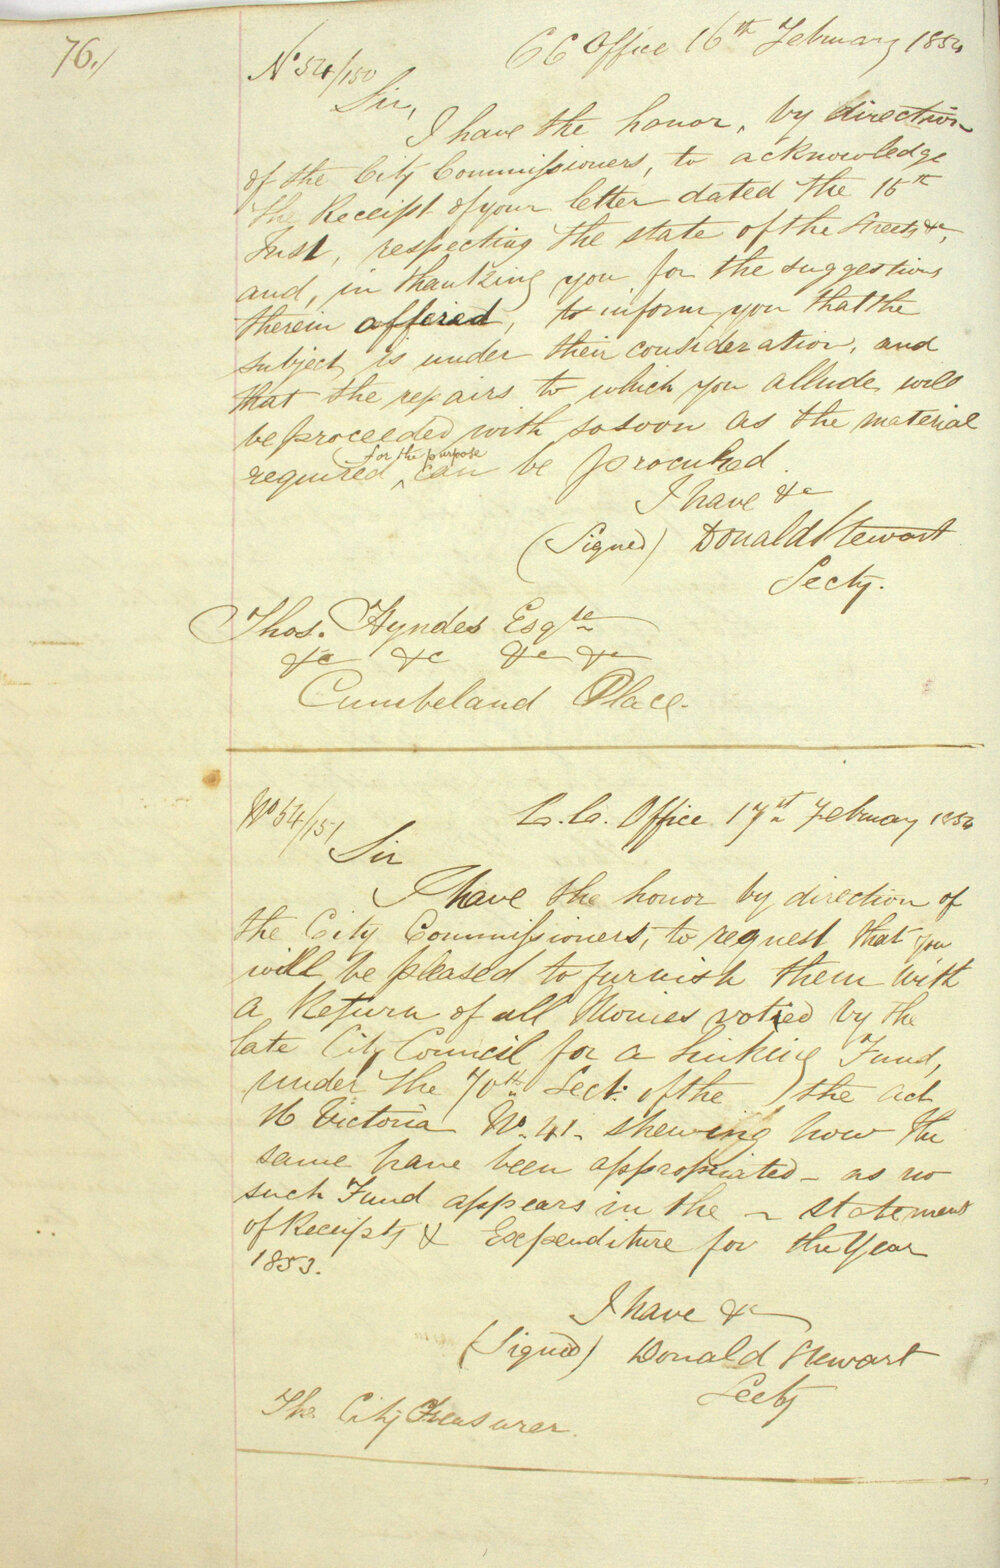 76./
No 54/150
CC Office 16th February 1854
Sir,
I have the honor, by direction
of the City Commissioners, to acknowledge
the Receipt of your letter dated the 15th
Inst, respecting the state of the Streets &c,
and, in thanking you for the suggestions
therein offered, to inform you that the
subject is under their consideration, and
that the repairs to which you allude will
be proceeded with so soon as the material
for the purpose
required ^ can be procured.
I have &c
(Signed) Donald Stewart
Secty.
Thos. Hyndes Esqre
&c &c &c &c
Cumbeland Place.
No 54/151
C.C. Office 17th February 1854
Sir
I have the honor by direction of
the City Commissioners, to request that you
will be pleased to furnish them with
a Return of all Monies voted by the
late City Council for a Sinking Fund,
under the 70th Sect: of the the act
16 Victoria No. 41 - shewing how the
same have been appropriated - as no
such Fund appears in the - statement
of Receipts & Expenditure for the Year
1853.
I have &c
(Signed) Donald Stewart
Secty
The City Treasurer.